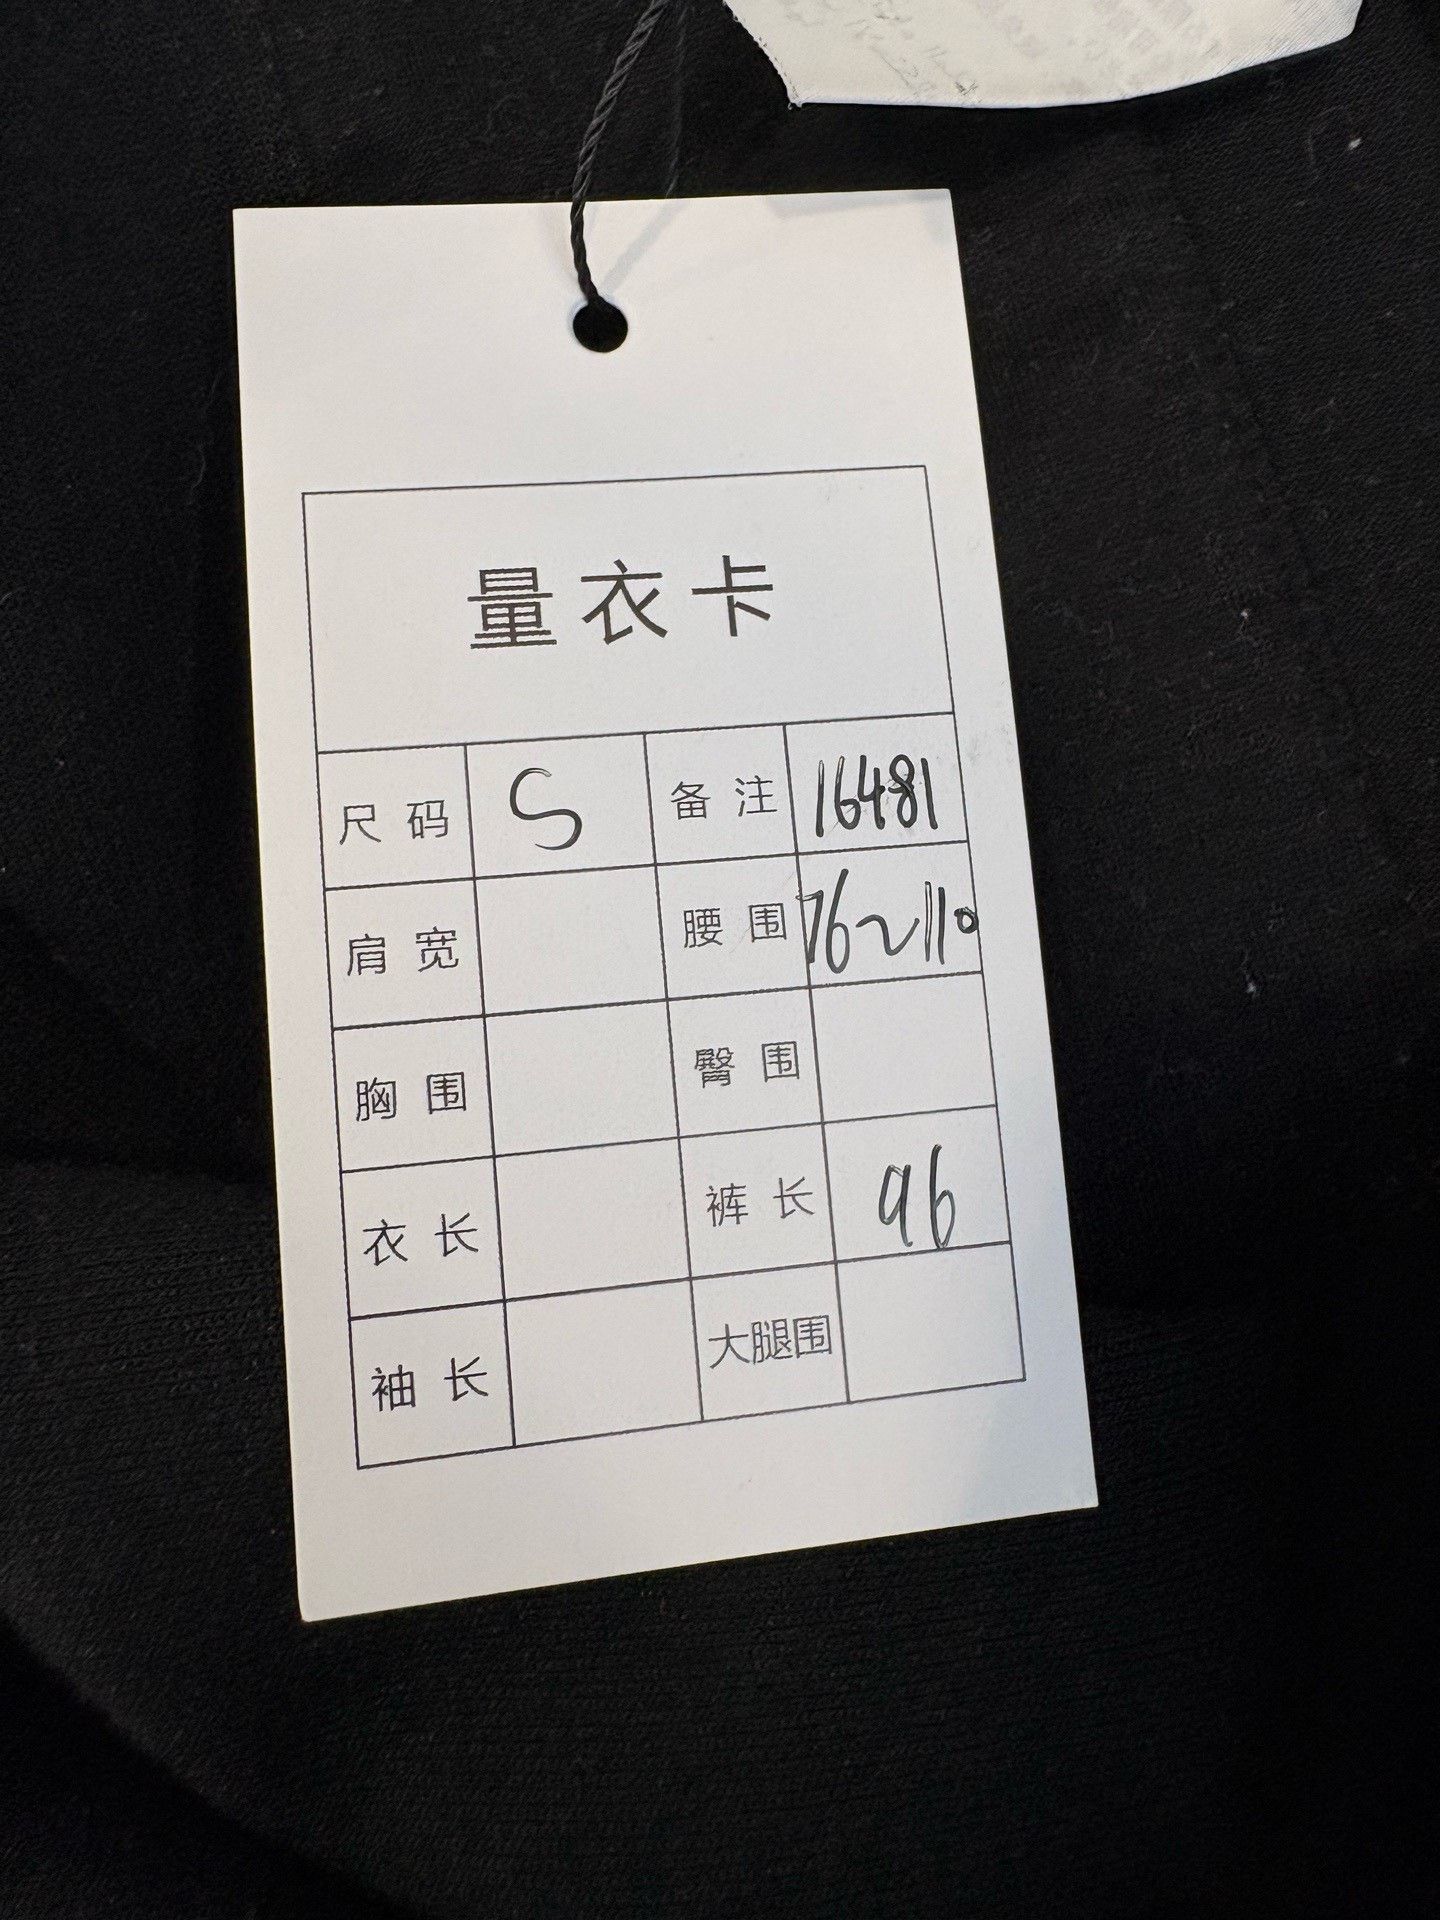 量衣卡
尺码 S 备注 16481
肩宽 腰围 76~110
胸围 臀围
衣长 裤长 96
袖长 大腿围